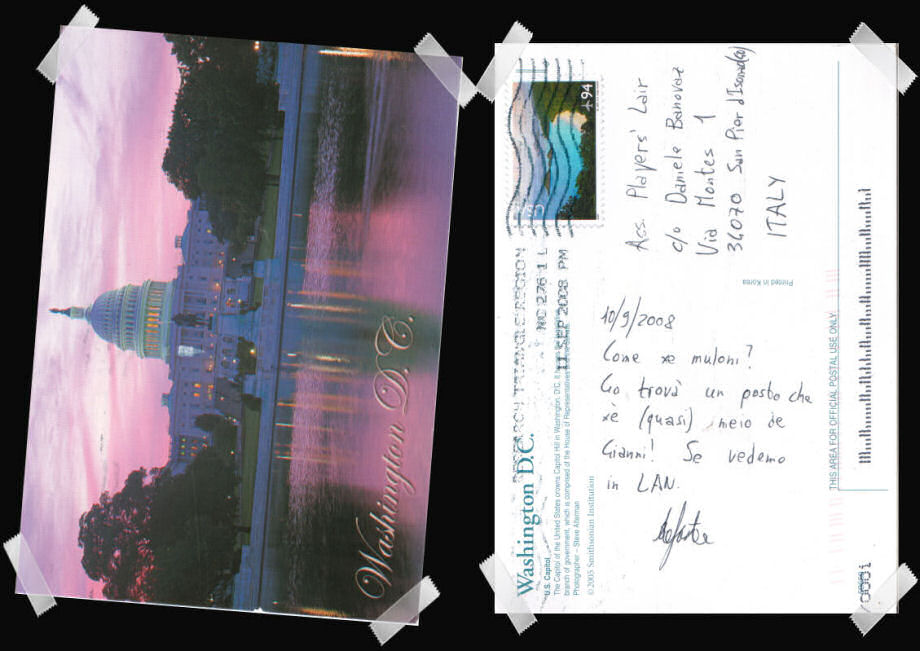 Washington D.C.
94
RESEARCH TRIANGLE REGION
NC 276 1 L
11 SEP 2008 PM
Ass. Players' Lair
c/o Daniele Banovaz
Via Montes 1
34070 San Pier d'Isonzo (GO)
ITALY
Printed in Korea
10/9/2008
Come xe muloni?
Go trovà un posto che
xé (quasi) meio de
Gianni! Se vedemo
in LAN.
Washington D.C.
U.S. Capitol
The Capitol of the United States crowns Capitol Hill in Washington, D.C.
branch of government, which is comprised of the House of Representatives
Photographer – Steve Alterman
© 2005 Smithsonian Institution
THIS AREA FOR OFFICIAL POSTAL USE ONLY